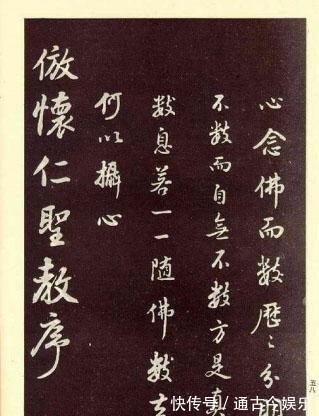 心念佛而数歷々分明
不数而自無不数方是真
数息若一一随佛数去
何以攝心
倣懷仁聖教序
五八
快传号/ 通古今娱乐